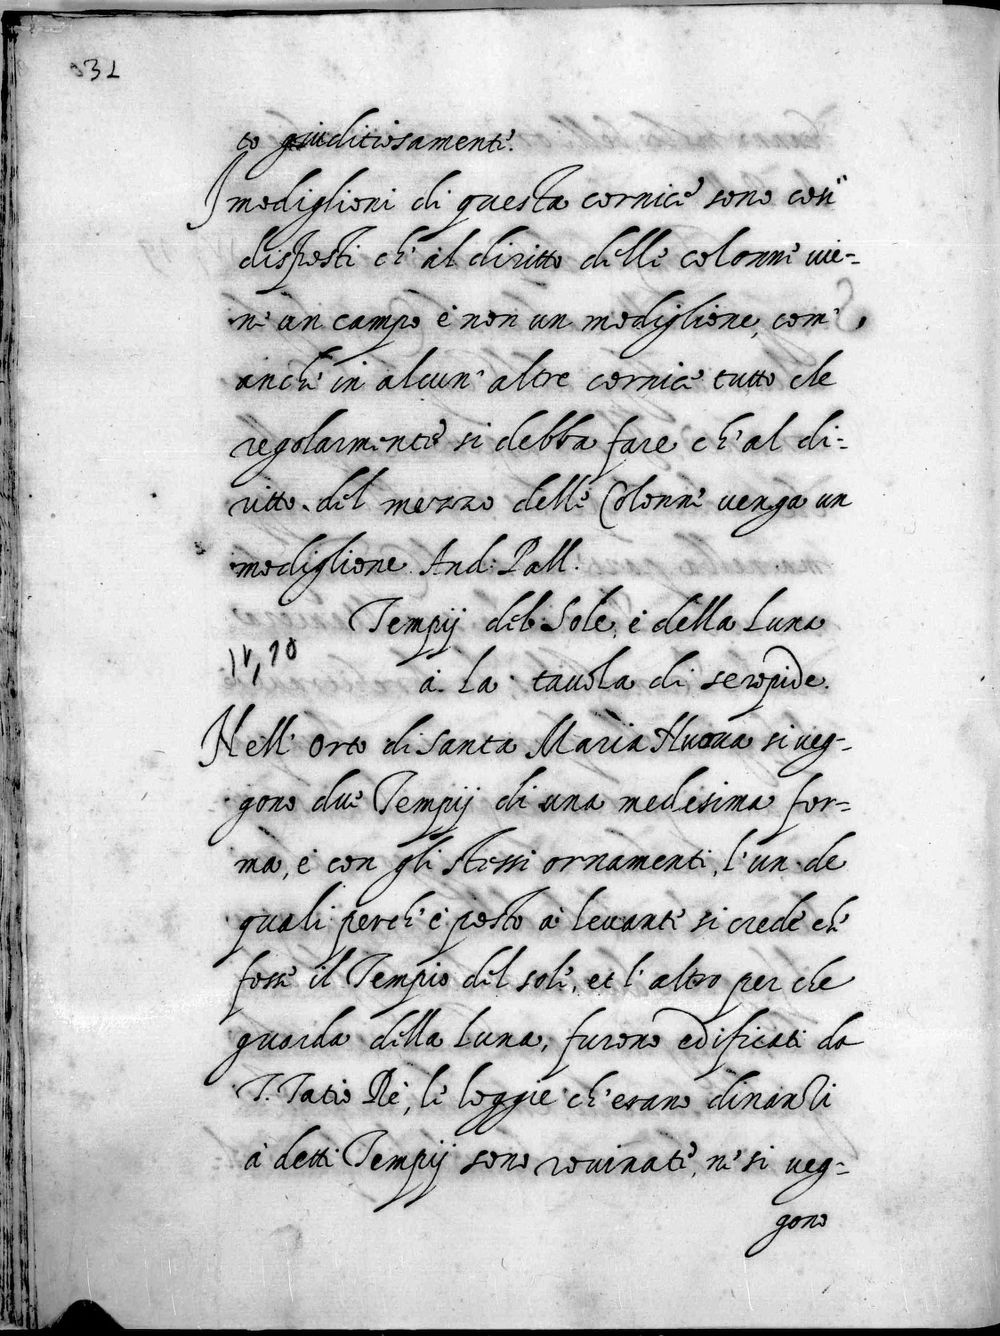 32
to giuditiosamente.
I modiglioni di questa cornice sono così
disposti ch'al diritto delle colonne vie-
ne un campo e non un modiglione, com'
anche in alcun'altre cornice tutto che
regolarmente si debba fare ch'al di-
ritto del mezzo delle Colonne venga un
modiglione And: Pall.
Tempij del Sole, e della Luna
a. La tavola di seropide.
Nell'Orto di Santa Maria Nuova si veg-
gono due Tempij di una medesima for-
ma, e con gli stessi ornamenti, l'un de
quali perch'è posto à levante si crede ch'
fosse il Tempio del sole, et l'altro per che
guarda della Luna, furono edificati da
T. Tatio Rè, le loggie ch'erano dinanzi
à detti Tempij sono rovinate, ne si veg-
gono